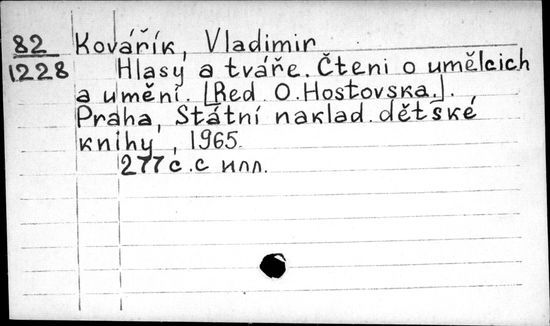 82 Kovářík, Vladimir
1228 Hlasy a tváře. Čteni o umělcich
a uměni. [Red. O. Hostovska.].
Praha, Státní naklad. dětské
knihy, 1965.
277 с. с илл.